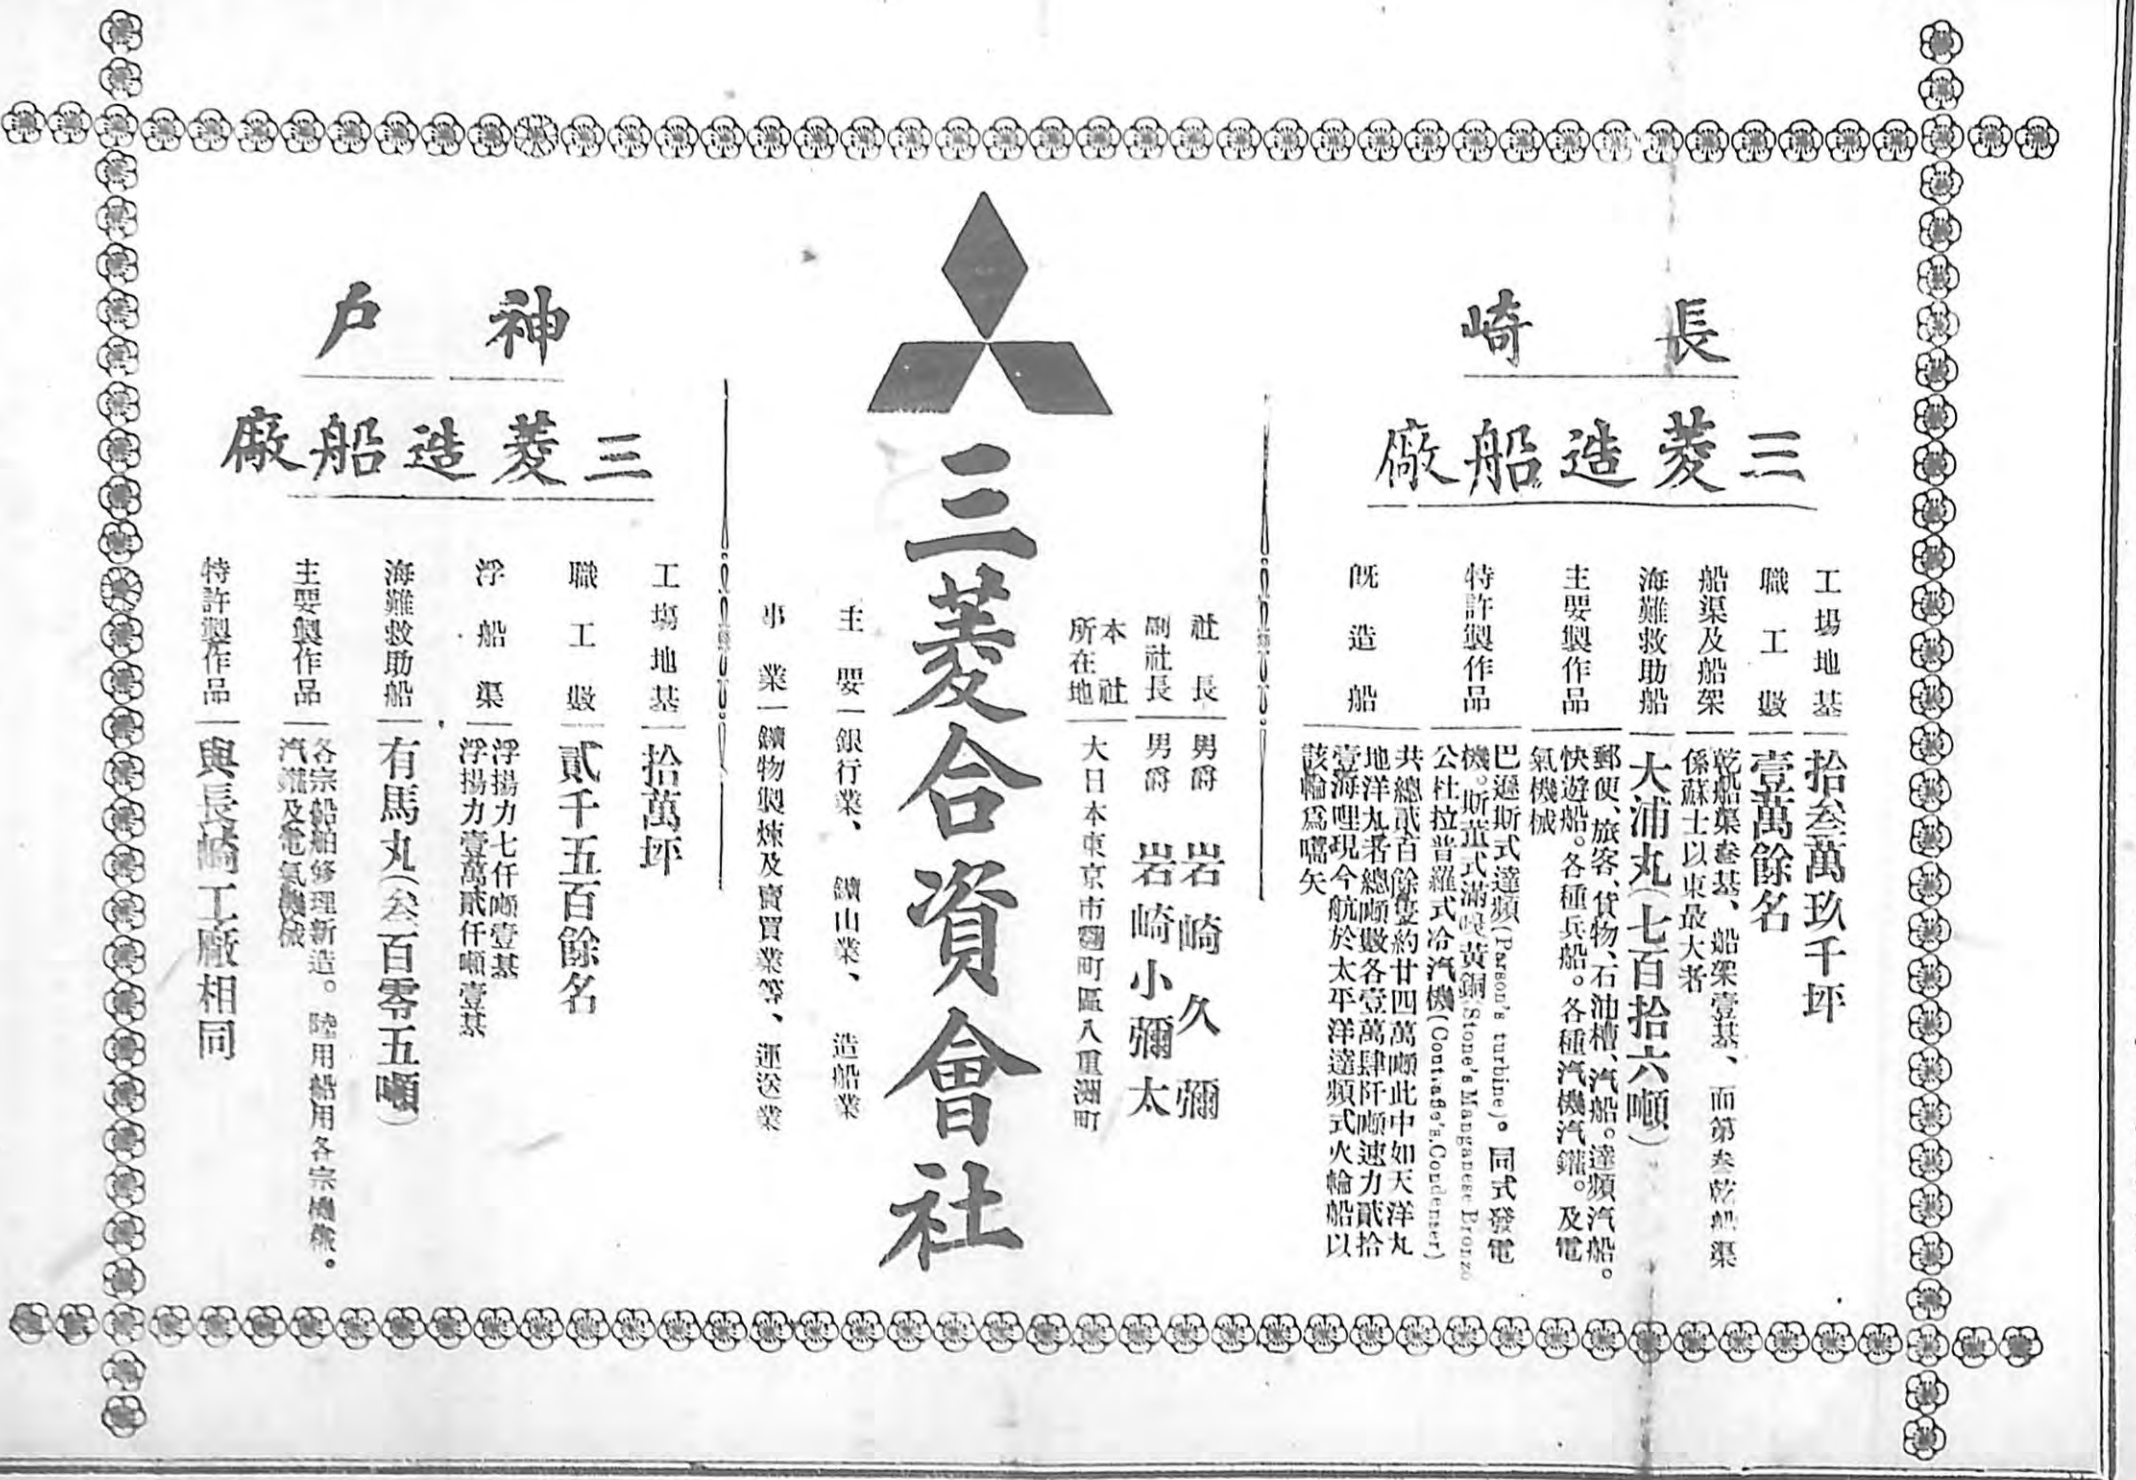 長崎
三菱造船廠
工場地基
拾叁萬玖千坪
職工數
壹萬餘名
船渠及船架
乾船渠叁基、船架壹基、而第叁乾船渠
係蘇士以東最大者
海難救助船
大浦丸(七百拾六噸)
主要製作品
郵便、旅客、貨物、石油槽、汽船。達頻汽船。
快遊船。各種兵船。各種汽機汽鑵。及電
氣機械
特許製作品
巴遜斯式達頻(Parson's turbine)。同式發電
機。斯並式滿 黃銅(Stone's Manganese Bronze
公杜拉普羅式冷汽機(Condenser)
既造船
共總貳百餘隻約廿四萬噸此中如天洋丸
地洋丸者總噸數各壹萬肆阡噸速力貳拾
壹海哩現今航於太平洋達頻式火輪船以
該輪爲嚆矢
三菱合資會社
社長
男爵 岩崎久彌
副社長
男爵 岩崎小彌太
本社
所在地
大日本東京市麴町區八重洲町
主要
事業
銀行業、鑛山業、造船業
鑛物製煉及賣買業等、運送業
神戶
三菱造船廠
工塲地基
拾萬坪
職工數
貳千五百餘名
浮船渠
浮揚力七仟噸壹基
浮揚力壹萬貳仟噸壹基
海難救助船
有馬丸(叁百零五噸)
主要製作品
各宗船舶修理新造。陸用船用各宗機械。
汽鑵及電氣機械
特許製作品
與長崎工廠相同